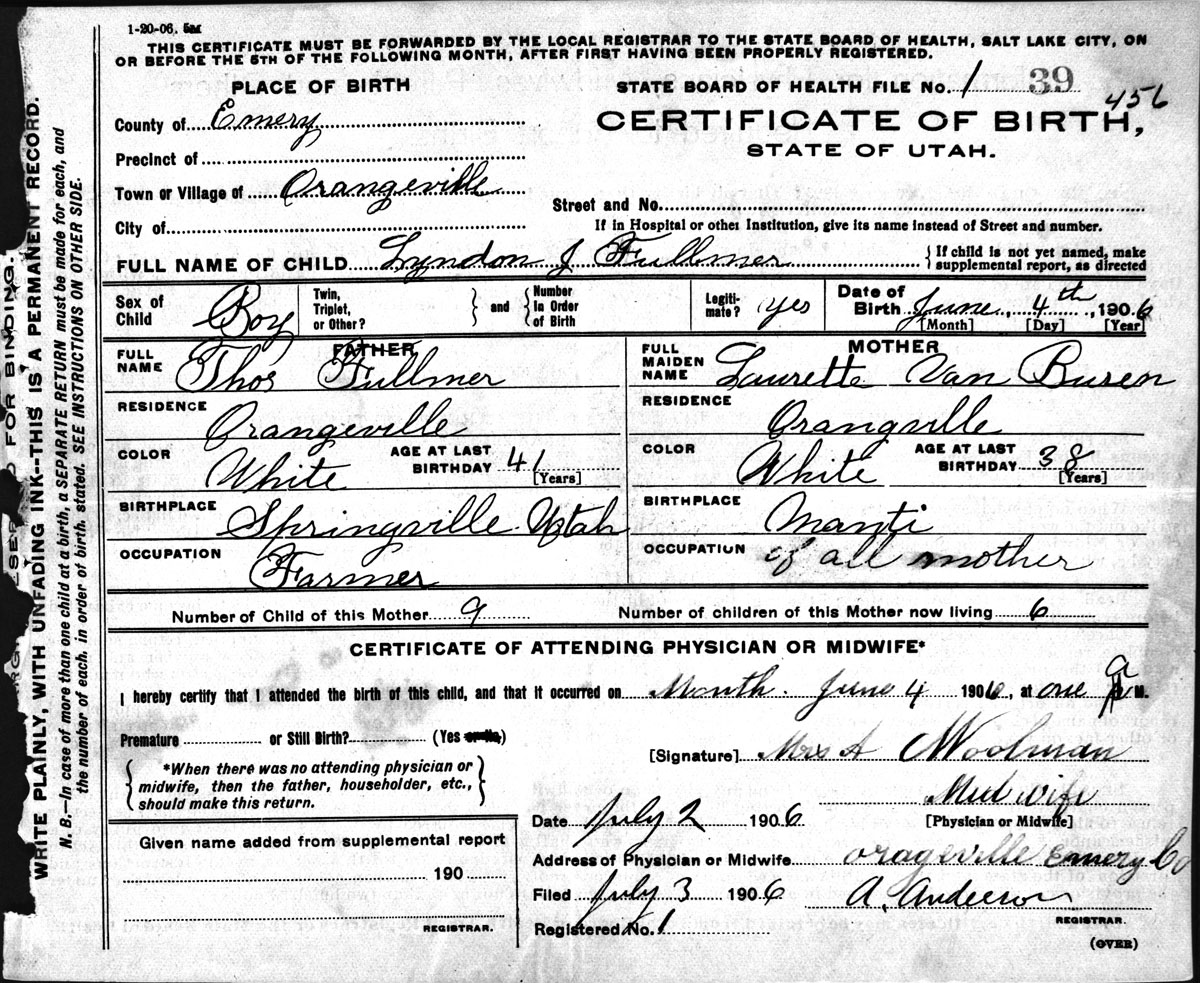 1-20-06. 5M
THIS CERTIFICATE MUST BE FORWARDED BY THE LOCAL REGISTRAR TO THE STATE BOARD OF HEALTH, SALT LAKE CITY, ON
OR BEFORE THE 5TH OF THE FOLLOWING MONTH, AFTER FIRST HAVING BEEN PROPERLY REGISTERED.
PLACE OF BIRTH
STATE BOARD OF HEALTH FILE No. 1 39 456
County of Emery
CERTIFICATE OF BIRTH,
STATE OF UTAH.
Precinct of
Town or Village of Orangeville
Street and No.
City of
If in Hospital or other Institution, give its name instead of Street and number.
FULL NAME OF CHILD Lyndon J Fullmer
{If child is not yet named, make
supplemental report, as directed
Sex of Child Boy
Twin, Triplet, or Other? } and { Number In Order of Birth
Legiti-mate? yes
Date of Birth June 4th, 1906
[Month] [Day] [Year]
FATHER
FULL NAME Thos Fullmer
MOTHER
FULL MAIDEN NAME Laurette Van Buren
RESIDENCE Orangeville
RESIDENCE Orangville
COLOR White AGE AT LAST BIRTHDAY 41 [Years]
COLOR White AGE AT LAST BIRTHDAY 38 [Years]
BIRTHPLACE Springville Utah
BIRTHPLACE Manti
OCCUPATION Farmer
OCCUPATION of all mother
Number of Child of this Mother 9
Number of children of this Mother now living 6
CERTIFICATE OF ATTENDING PHYSICIAN OR MIDWIFE*
I hereby certify that I attended the birth of this child, and that it occurred on Month. June 4 1906, at one a M.
Premature or Still Birth? (Yes or No)
[Signature] Mrs A Woolman
{*When there was no attending physician or
midwife, then the father, householder, etc.,
should make this return.}
Mid wife
[Physician or Midwife]
Date July 2 1906
Given name added from supplemental report
190
REGISTRAR.
Address of Physician or Midwife orageville Emery Co
Filed July 3 1906 A. Anderson
REGISTRAR.
Registered No. 1
(OVER)
FOR BINDING.
WRITE PLAINLY, WITH UNFADING INK--THIS IS A PERMANENT RECORD.
N. B.—In case of more than one child at a birth, a SEPARATE RETURN must be made for each, and
the number of each, in order of birth, stated. SEE INSTRUCTIONS ON OTHER SIDE.